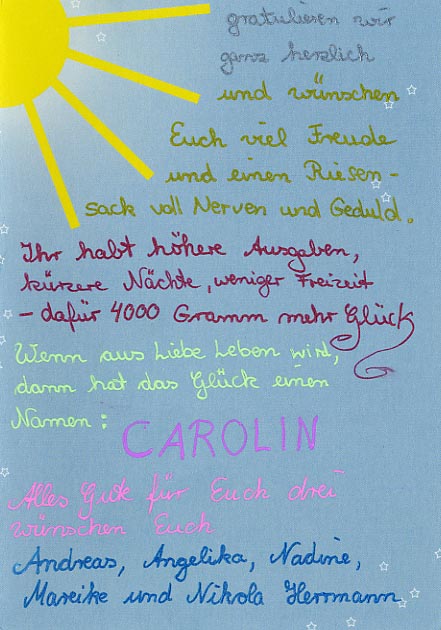 gratulieren wir
ganz herzlich
und wünschen
Euch viel Freude
und einen Riesen-
sack voll Nerven und Geduld.
Ihr habt höhere Ausgaben,
kürzere Nächte, weniger Freizeit
- dafür 4000 Gramm mehr Glück
Wenn aus Liebe Leben wird,
dann hat das Glück einen
Namen:
CAROLIN
Alles Gute für Euch drei
wünschen Euch
Andreas, Angelika, Nadine,
Mareike und Nikola Herrmann